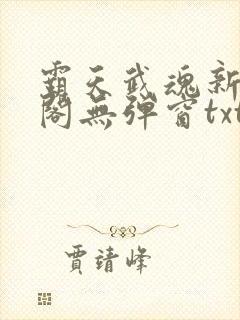 霸天武魂新
閣無彈窗txt
賈靖峰